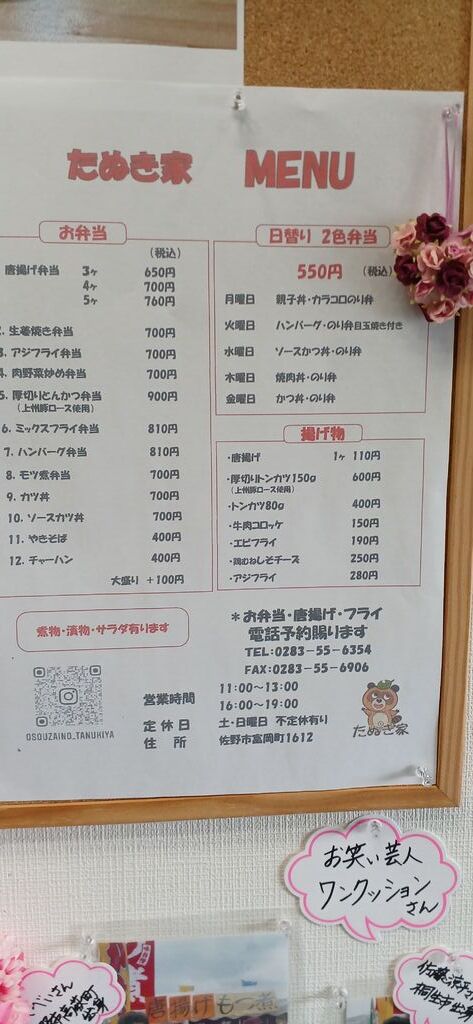 たぬき家 MENU
お弁当
(税込)
唐揚げ弁当 3ヶ 650円
4ヶ 700円
5ヶ 760円
2. 生姜焼き弁当 700円
3. アジフライ弁当 700円
4. 肉野菜炒め弁当 700円
5. 厚切りとんかつ弁当 900円
(上州豚ロース使用)
6. ミックスフライ弁当 810円
7. ハンバーグ弁当 810円
8. モツ煮弁当 700円
9. カツ丼 700円
10. ソースカツ丼 700円
11. やきそば 400円
12. チャーハン 400円
大盛り +100円
日替り 2色弁当
550円 (税込)
月曜日 親子丼・カラコロのり弁
火曜日 ハンバーグ・のり弁目玉焼き付き
水曜日 ソースかつ丼・のり弁
木曜日 焼肉丼・のり弁
金曜日 かつ丼・のり弁
揚げ物
・唐揚げ 1ヶ 110円
・厚切りトンカツ150g 600円
(上州豚ロース使用)
・トンカツ80g 400円
・牛肉コロッケ 150円
・エビフライ 190円
・鶏むねしそチーズ 250円
・アジフライ 280円
煮物・漬物・サラダ有ります
*お弁当・唐揚げ・フライ
電話予約賜ります
TEL:0283-55-6354
FAX:0283-55-6906
OSOUZAINO_TANUKIYA
営業時間 11:00~13:00
16:00~19:00
定休日 土・日曜日 不定休有り
住所 佐野市富岡町1612
たぬき家
お笑い芸人
ワンクッション
さん
唐揚げもつ煮